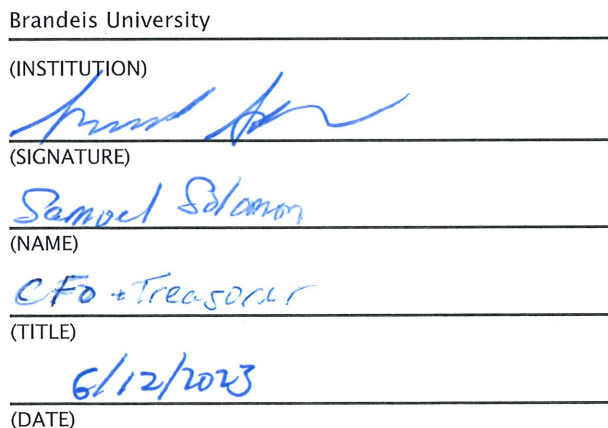 Brandeis University
(INSTITUTION)
(SIGNATURE)
Samuel Solomon
(NAME)
CFO + Treasurer
(TITLE)
6/12/2023
(DATE)